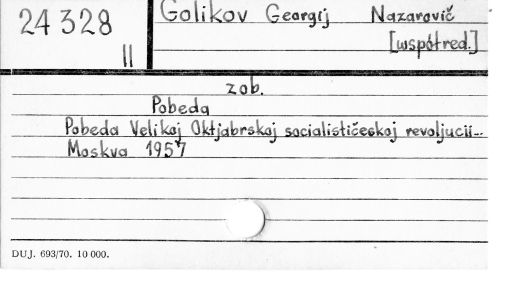 24 328
II
Golikov Georgij Nazarovič
[współred.]
zob.
Pobeda
Pobeda Velikoj Oktjabrskoj socialističeskoj revoljucii...
Moskva 1957
DUJ. 693/70. 10 000.